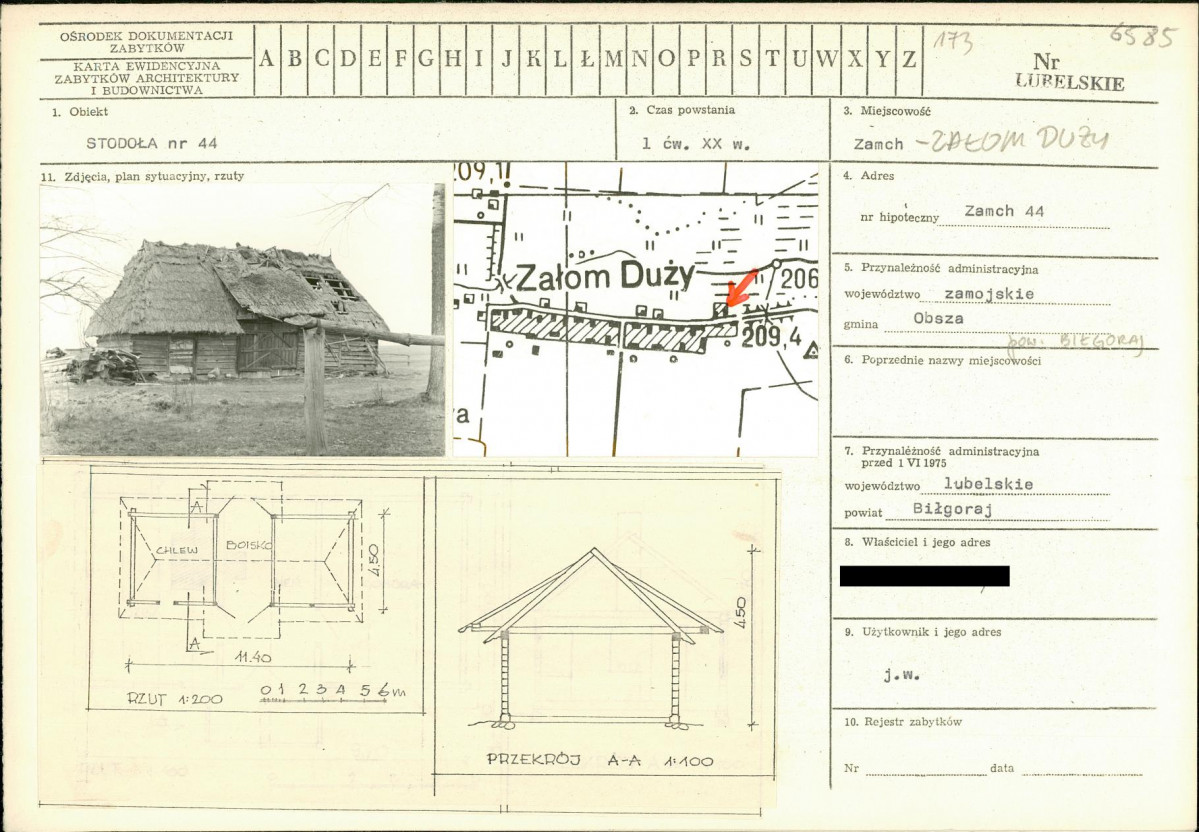 OŚRODEK DOKUMENTACJI
ZABYTKÓW
KARTA EWIDENCYJNA
ZABYTKÓW ARCHITEKTURY
I BUDOWNICTWA
A B C D E F G H I J K L Ł M N O P R S T U W X Y Z
173
6585
Nr
LUBELSKIE
1. Obiekt
STODOŁA nr 44
2. Czas powstania
1 ćw. XX w.
3. Miejscowość
Zamch - ZAŁOM DUŻY
11. Zdjęcia, plan sytuacyjny, rzuty
4. Adres
nr hipoteczny Zamch 44
5. Przynależność administracyjna
województwo zamojskie
gmina Obsza
pow. BIŁGORAJ
6. Poprzednie nazwy miejscowości
7. Przynależność administracyjna
przed 1 VI 1975
województwo lubelskie
powiat Biłgoraj
8. Właściciel i jego adres
9. Użytkownik i jego adres
j.w.
10. Rejestr zabytków
Nr
data
209,1
Załom Duży
206
209,4
a
A
CHLEW
BOISKO
4.50
A
11.40
RZUT 1:200
0 1 2 3 4 5 6m
450
PRZEKRÓJ A-A 1:100